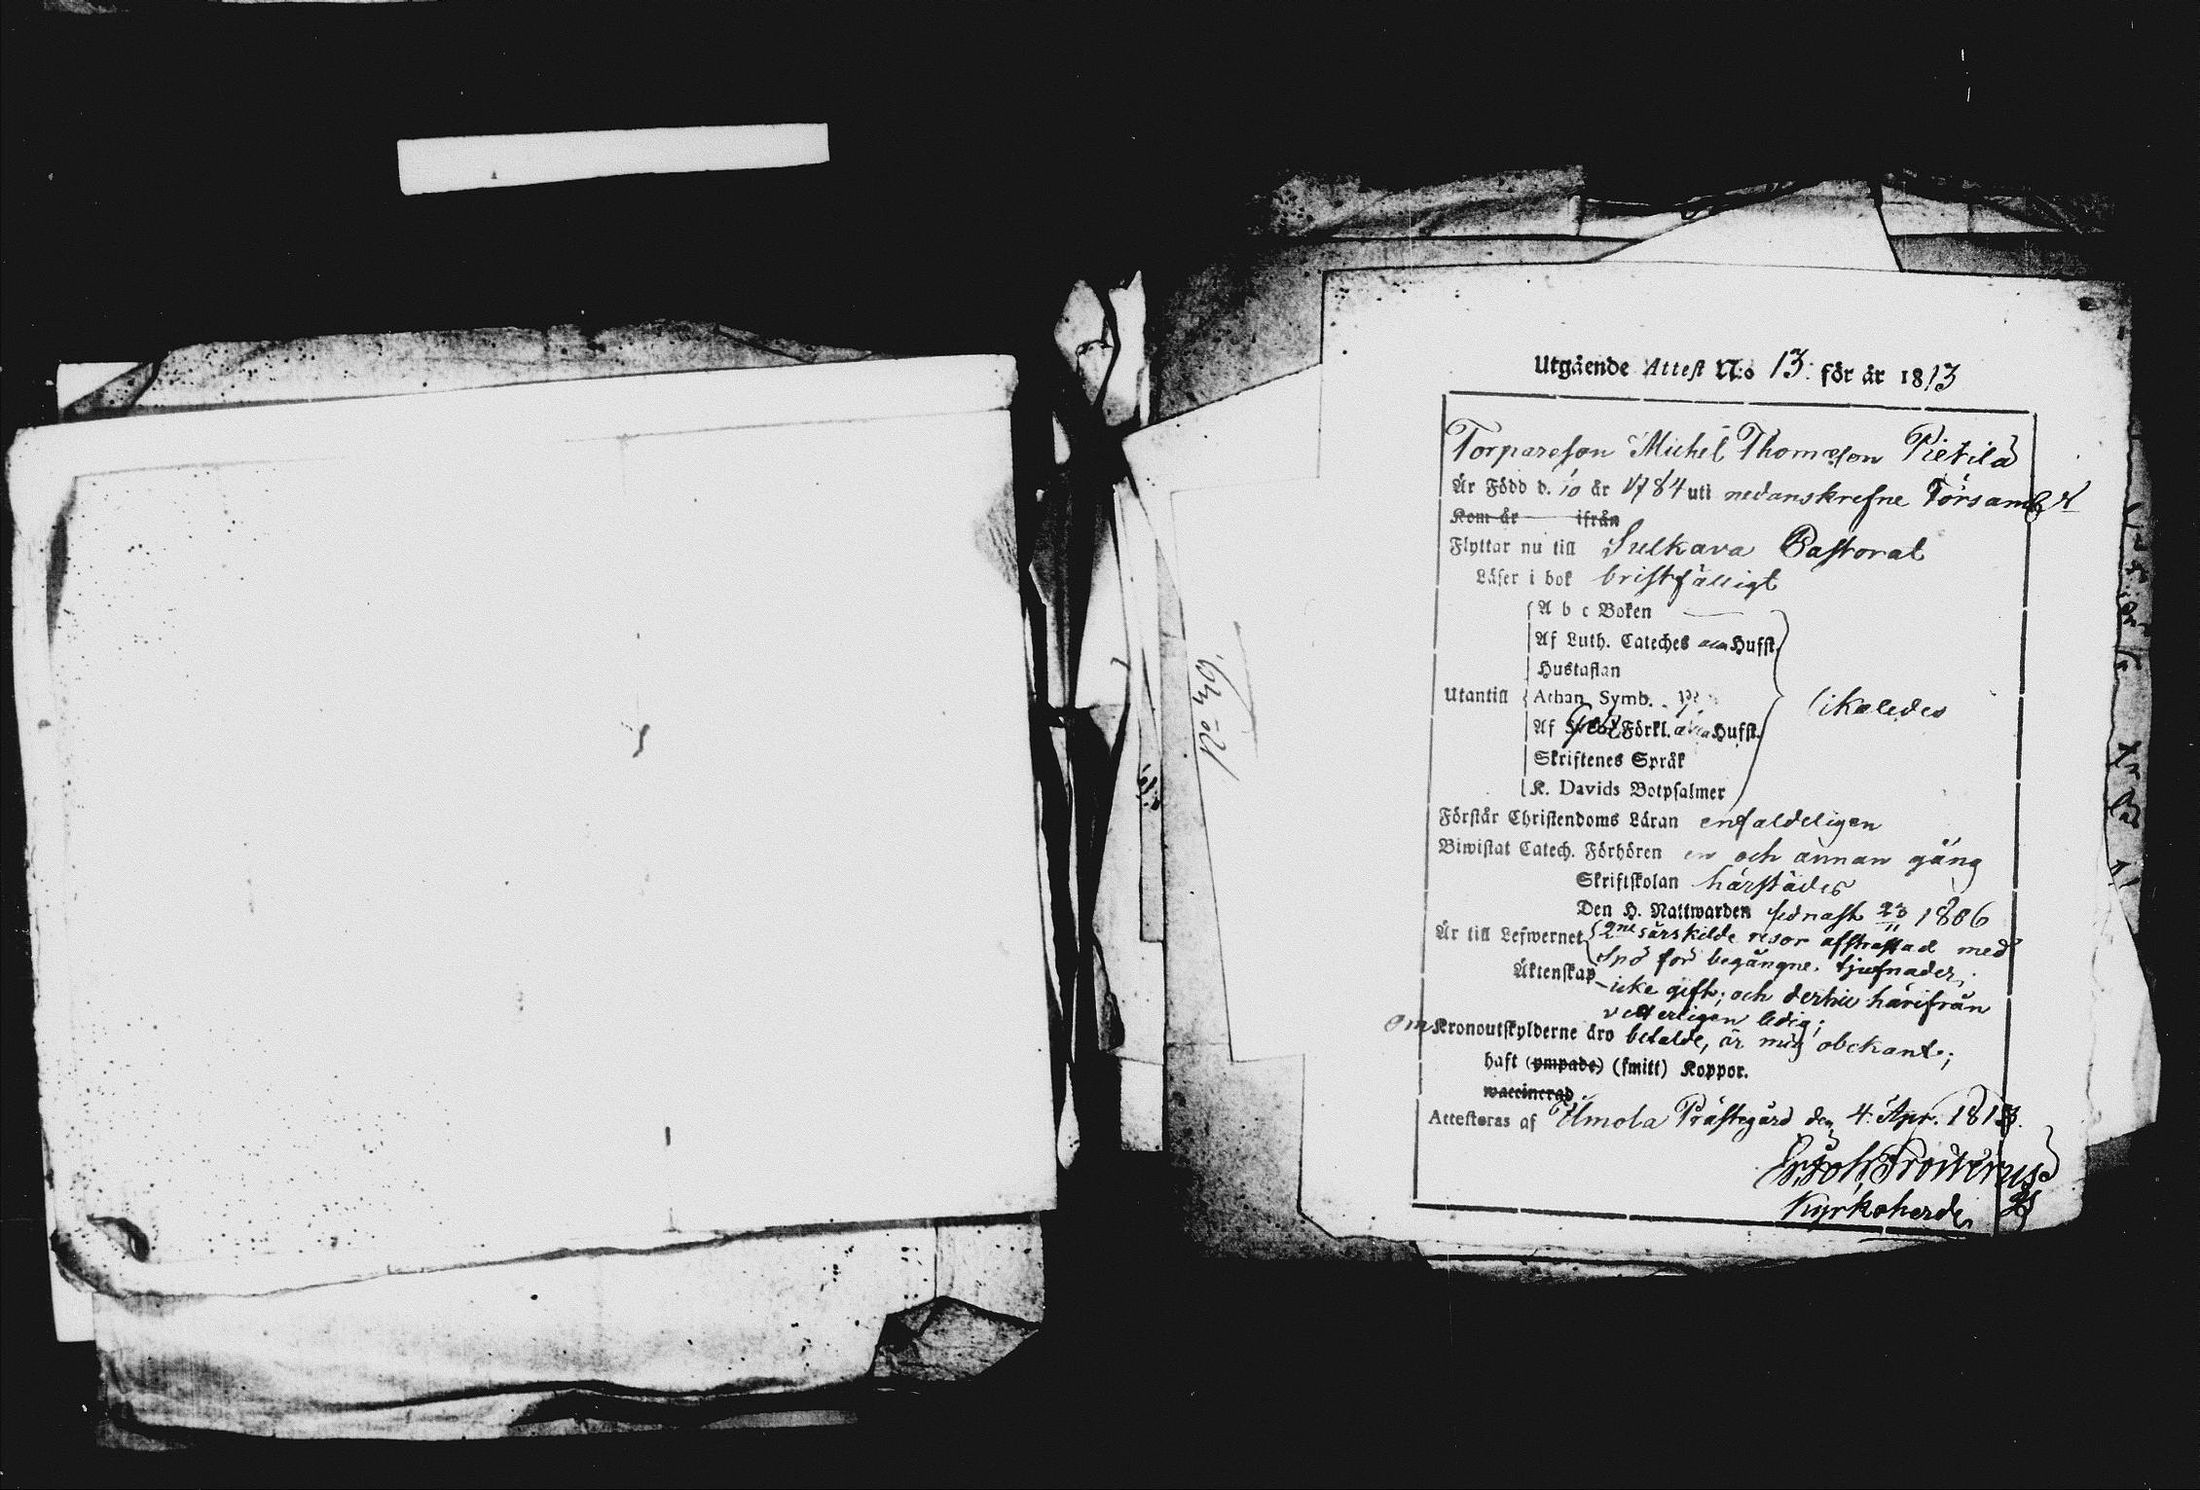 Utgående Attest N:o 13. för år 1813
Torpareson Michel Thomeson Pietilä
Är Född d. 10 år 1784 uti nedanskrefne Församl.
Kom år ifrån
Flyttar nu till Sulkava Pastorat
Läser i bok bristfälligt
A b c Boken
Af Luth. Cateches alla Hufst.
Hustaflan
Utantill Athan. Symb. likaledes
Af Förkl. alla Hufst.
Skriftenes Språk
K. Davids Botpsalmer
Förstår Christendoms Läran enfaldeligen
Biwistat Catech. Förhören en och annan gång
Skriftskolan härstädes
Den H. Nattwarden sednast 23/11 1806
Är till Lefwernet 2ne särskilde resor afstraffad med
spö för begångne tjufnader,
Äktenskap icke gift; och dertill härifrån
vetterligen ledig;
om Kronoutskylderne äro betalde, är mig obekant;
haft (ympade) (smitt) Koppor.
waccinerad.
Attesteras af Ilmola Prästegård den 4. Apr. 1813.
Kyrkoherde